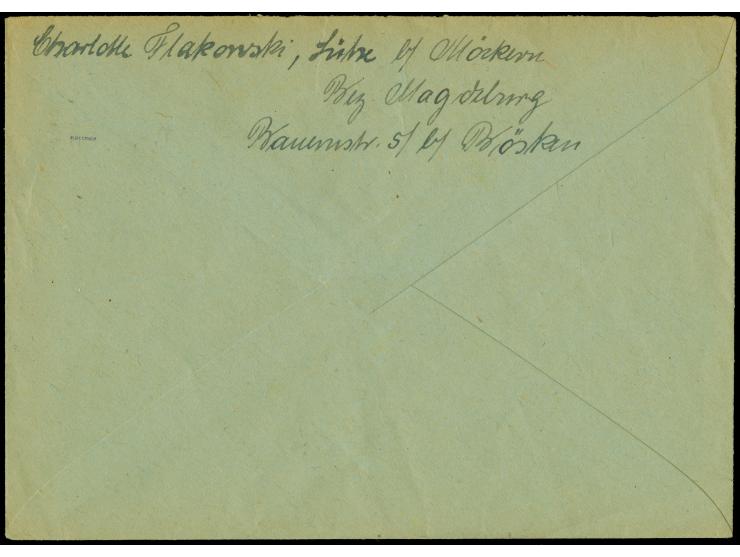 Charlotte Flakowski, Lütze b/ Möckern
Bez Magdeburg
Bauernstr. 5/ b/ Bösken